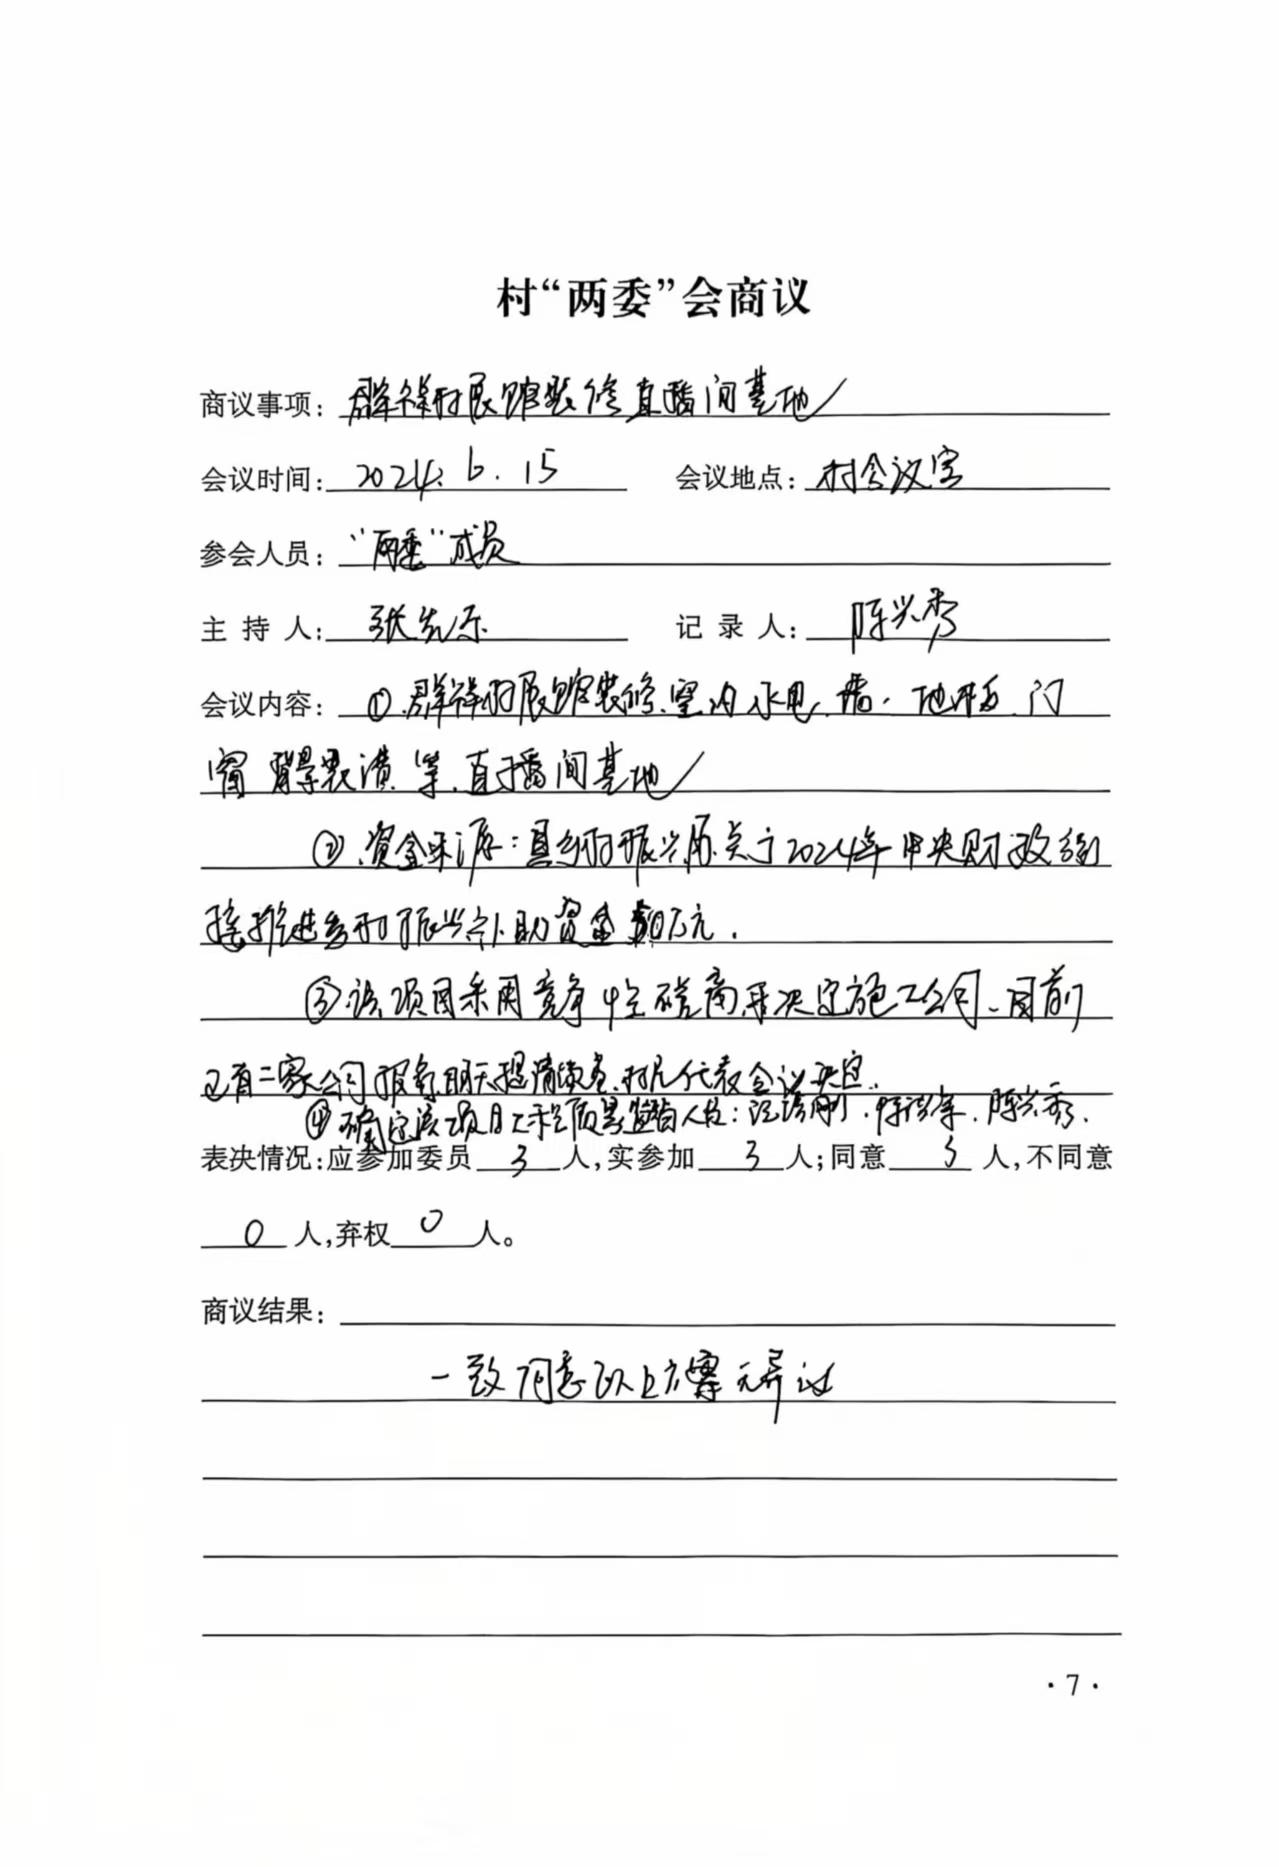 村“两委”会商议
商议事项：群祥村展馆装修直播间基地
会议时间：2024.6.15 会议地点：村会议室
参会人员：“两委”成员
主持人：张先乐 记录人：陈兴秀
会议内容：①.群祥村展馆装修.室内水电.墙.地板.门
窗 背景装潢.等.直播间基地
②.资金来源：县乡村振兴局关于2024年中央财政衔
接推进乡村振兴补助资金 万元.
③该项目采用竞争性磋商来决定施工公司、目前
已有二家公司报名.明天提请 村民代表会议决定.
④确定该项目工程质量监督人员： .陈兴秀.
表决情况：应参加委员3人，实参加3人；同意3人，不同意
0人，弃权0人。
商议结果：
一致同意以上方案无异议
·7·